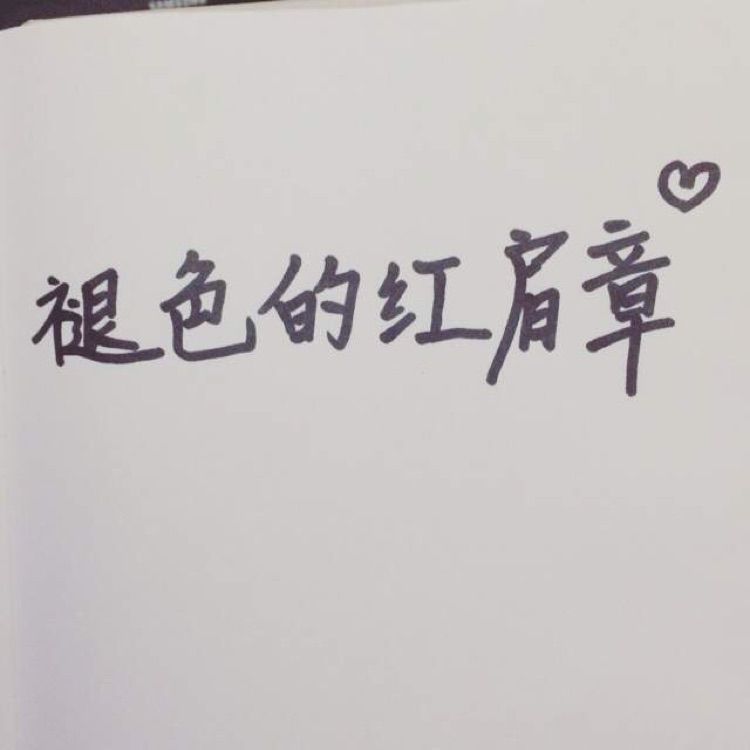 褪色的红肩章